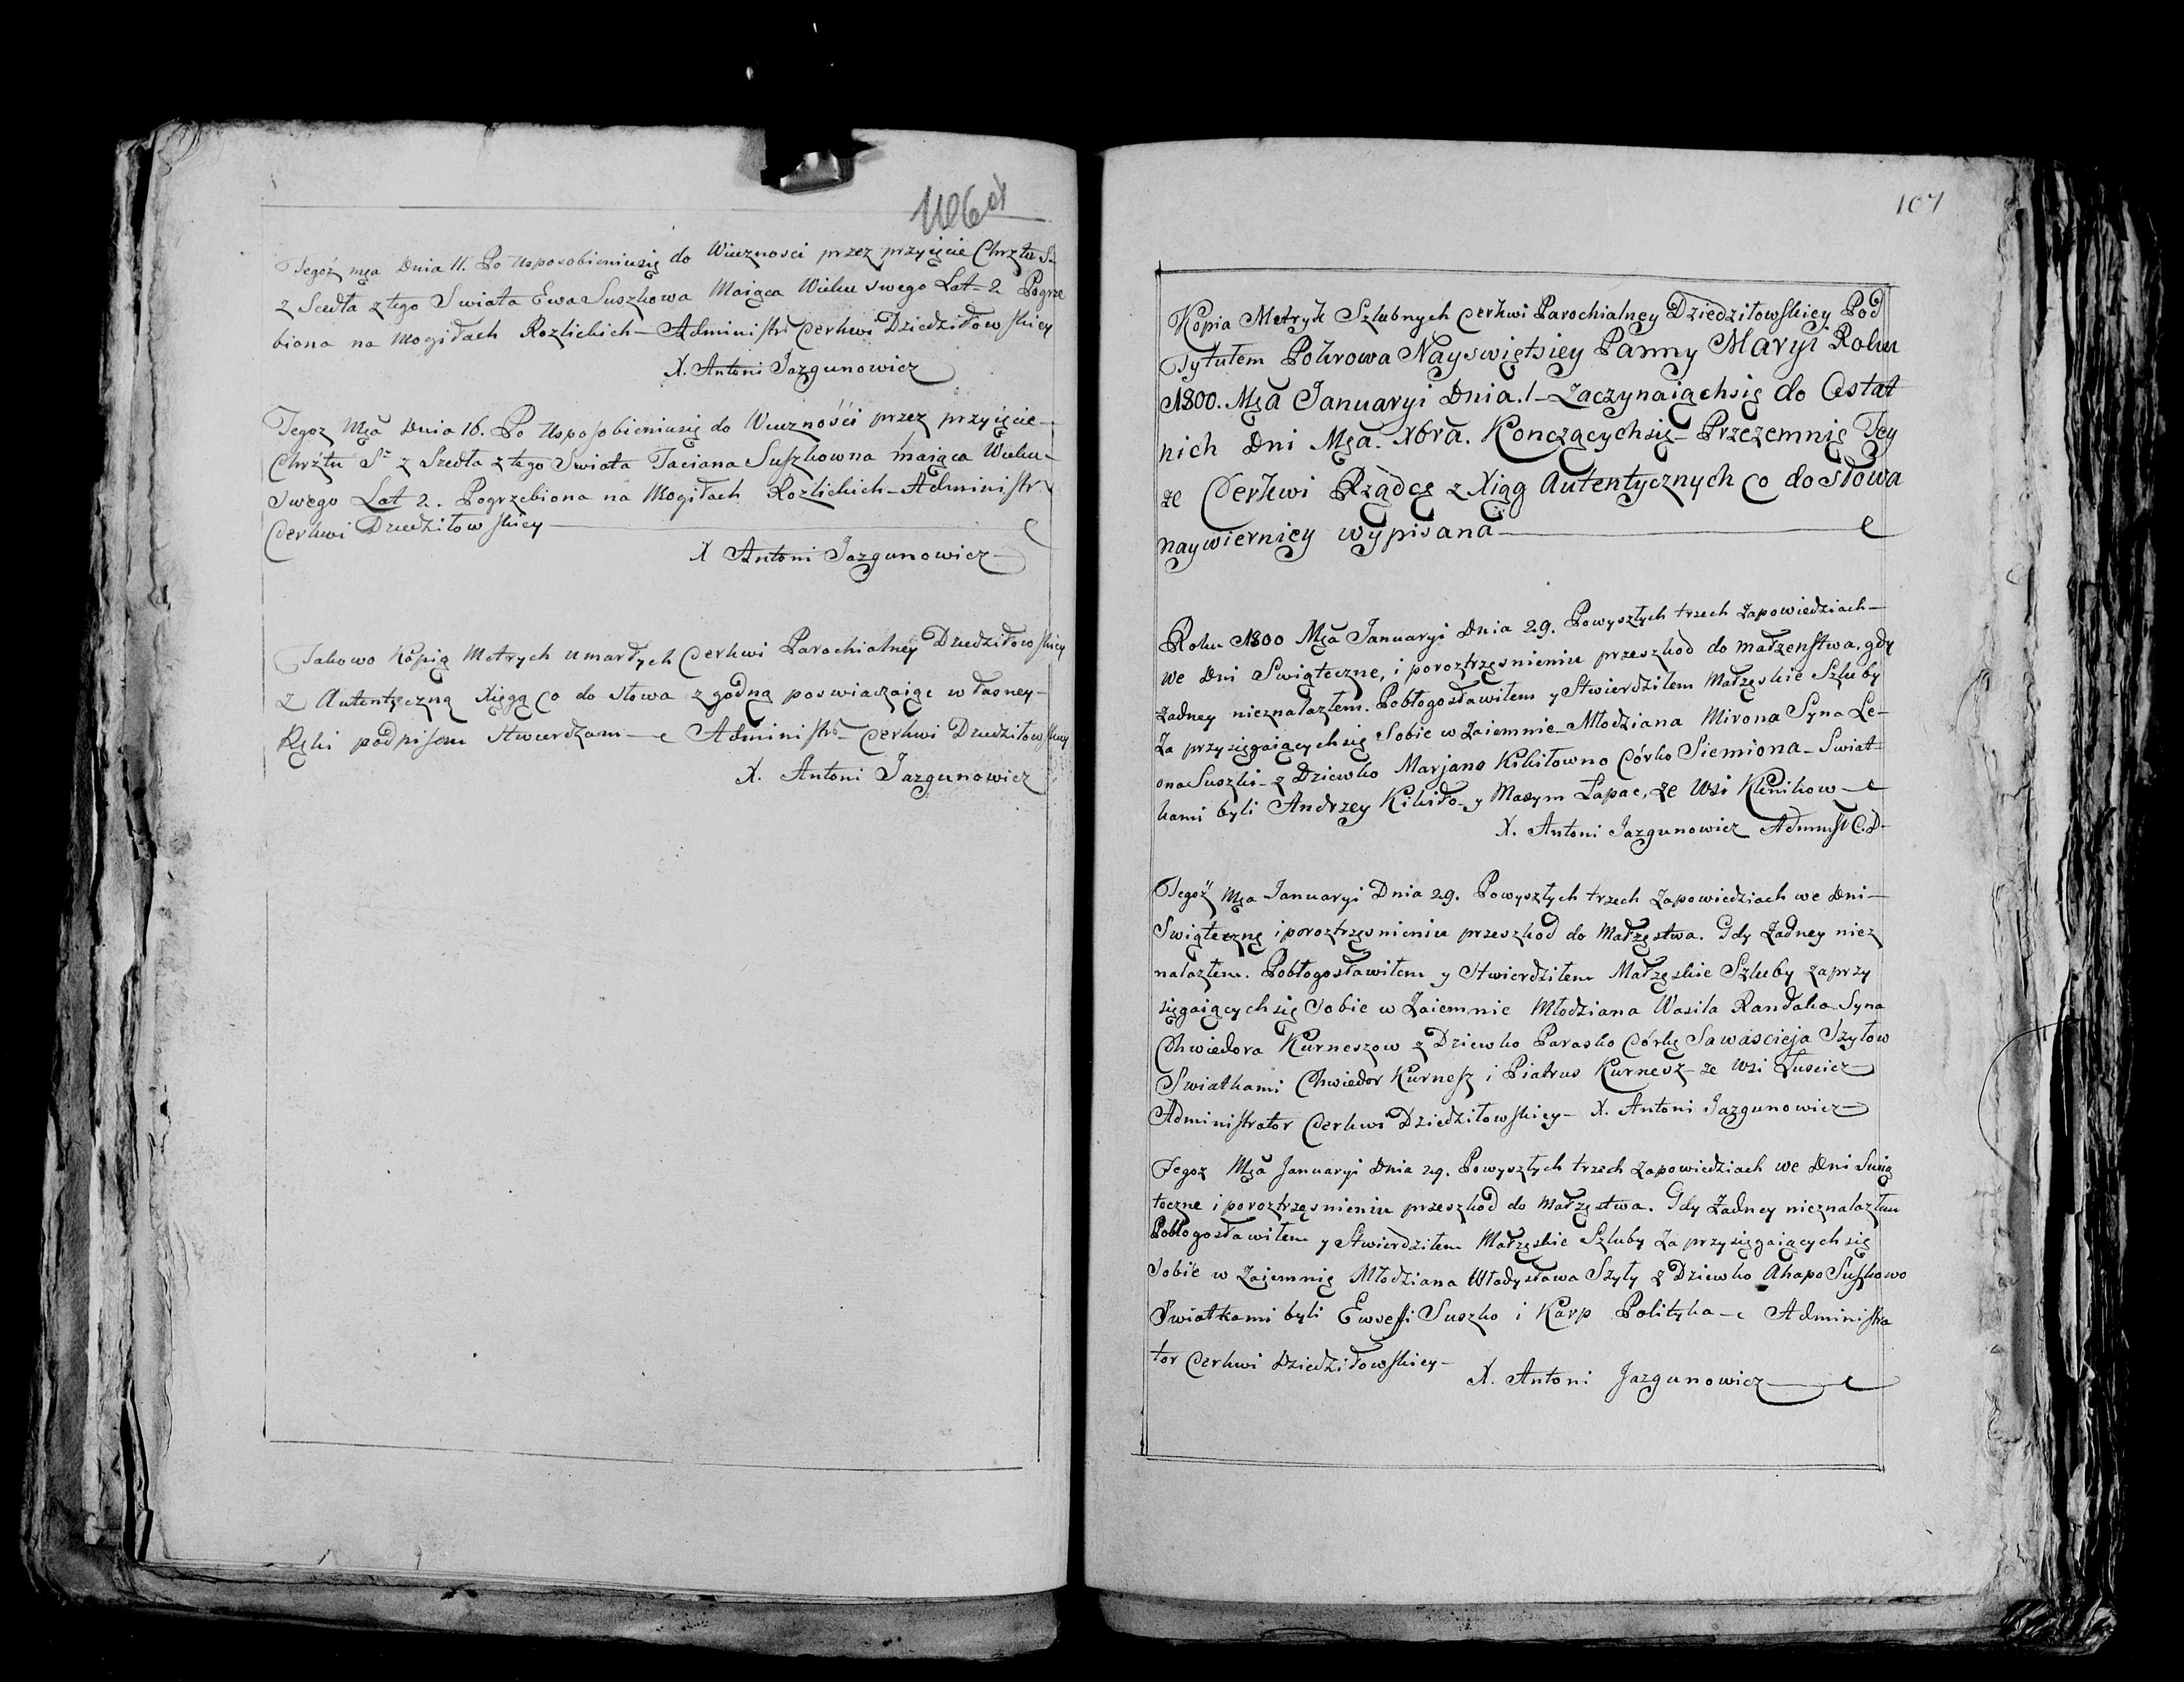 106 об
Tegoż mca Dnia 11. Po Usposobieniusię do Wiecznosci przez przyięcie Chrztu S.
z Szedła z tego Swiata Ewa Suszkowa Maiąca Wieku swego Lat 2 Pogrze
biona na Mogiłach Rozlickich — Administr Cerkwi Dziedziłowskiey
X. Antoni Jazgunowicz
Tegoz Mca Dnia 16. Po Usposobieniusię do Wiecznośći przez przyięcie —
Chrźtu Sº z Szedła z tego Swiata Taciana Suszkowna maiąca Wieku —
Swego Lat 2. Pogrzebiona na Mogiłach Rozlickich — Administr.
Cerkwi Dziedziłowskiey
X Antoni Jazgunowicz
Takowo Kopią Metrych umarłych Cerkwi Parochialney Dziedziłowskiey
z Autentyczną Xięgą co do słowa zgodną poswiadczaiąc własney —
Ręki podpisem stwierdzam — Administr — Cerkwi Dziedziłowskiey
X. Antoni Jazgunowicz
107
Kopia Metryk Szlubnych Cerkwi Parochialney Dziedziłowskiey Pod
Tytułem Pokrowa Nayswiętsiey Panny Maryi Roku
1800. Mca Januaryi Dnia. 1 — Zaczynaiąchsię do Ostat
nich Dni Mca. Xbra. Konczącychsię — Przezemnię Tey
ze Cerkwi Rządcę z Xiąg Autentycznych co do słowa
naywierniey wypisana
Roku 1800 Mca Januaryi Dnia 29. Powyszłych trzech zapowiedziach —
we Dni Swiąteczne, i poroztrzęsnieniu przeszkod do małzenstwa, gdy
żadney nieznalazłem. Pobłogosławiłem y Stwierdziłem Małzęskie Szluby
Zaprzysięgaiącychsię Sobie w Zaiemnie — Młodziana Mirona Syna Le —
ona Suszki — z Dziewko Marjano Kikiłowno Córko Siemiona — Swiat
kami byli Andrzey Kikiło — y Maxym Łapac, ze Wsi Klinikow —
X. Antoni Jazgunowicz Adminst C. D —
Tegoż Mca Januaryi Dnia 29. Powyszłych trzech zapowiedziach we Dni —
Swiątecznę i poroztrzęsnieniu przeszkod do Małzęstwa. Gdy Żadney niez
nalazłem. Pobłogosławiłem y Stwierdziłem Małzęskie Szluby zaprzy
sięgaiącychsię Sobie w Zaiemnie Młodziana Wasila Randaka Syna
Chwiedora Kurneszow z Dziewko Parasko Córkę Sawascieja Szyłow
Swiatkami Chwiedor Kurnesz i Piatrus Kurnesz — ze Wsi Łuscicz —
Administrator Cerkwi Dziedziłowskiey — X. Antoni Jazgunowicz —
Tegoz Mca Januaryi Dnia 29. Powyszłych trzech zapowiedziach we Dni Swią
teczne i poroztrzęsnieniu przeszkod do Małzęstwa. Gdy Żadney nieznalazłem
Pobłogosławiłem y Stwierdziłem Małzęskie Szluby Zaprzysięgaiącychsię
Sobie w Zaiemnię Młodziana Władysława Szyły z Dziewko Ahapo Suszkowo
Swiatkami byli Ewsefi Suszko i Karp Polityka — Administra
tor Cerkwi Dziedziłowskiey —
X. Antoni Jazgunowicz